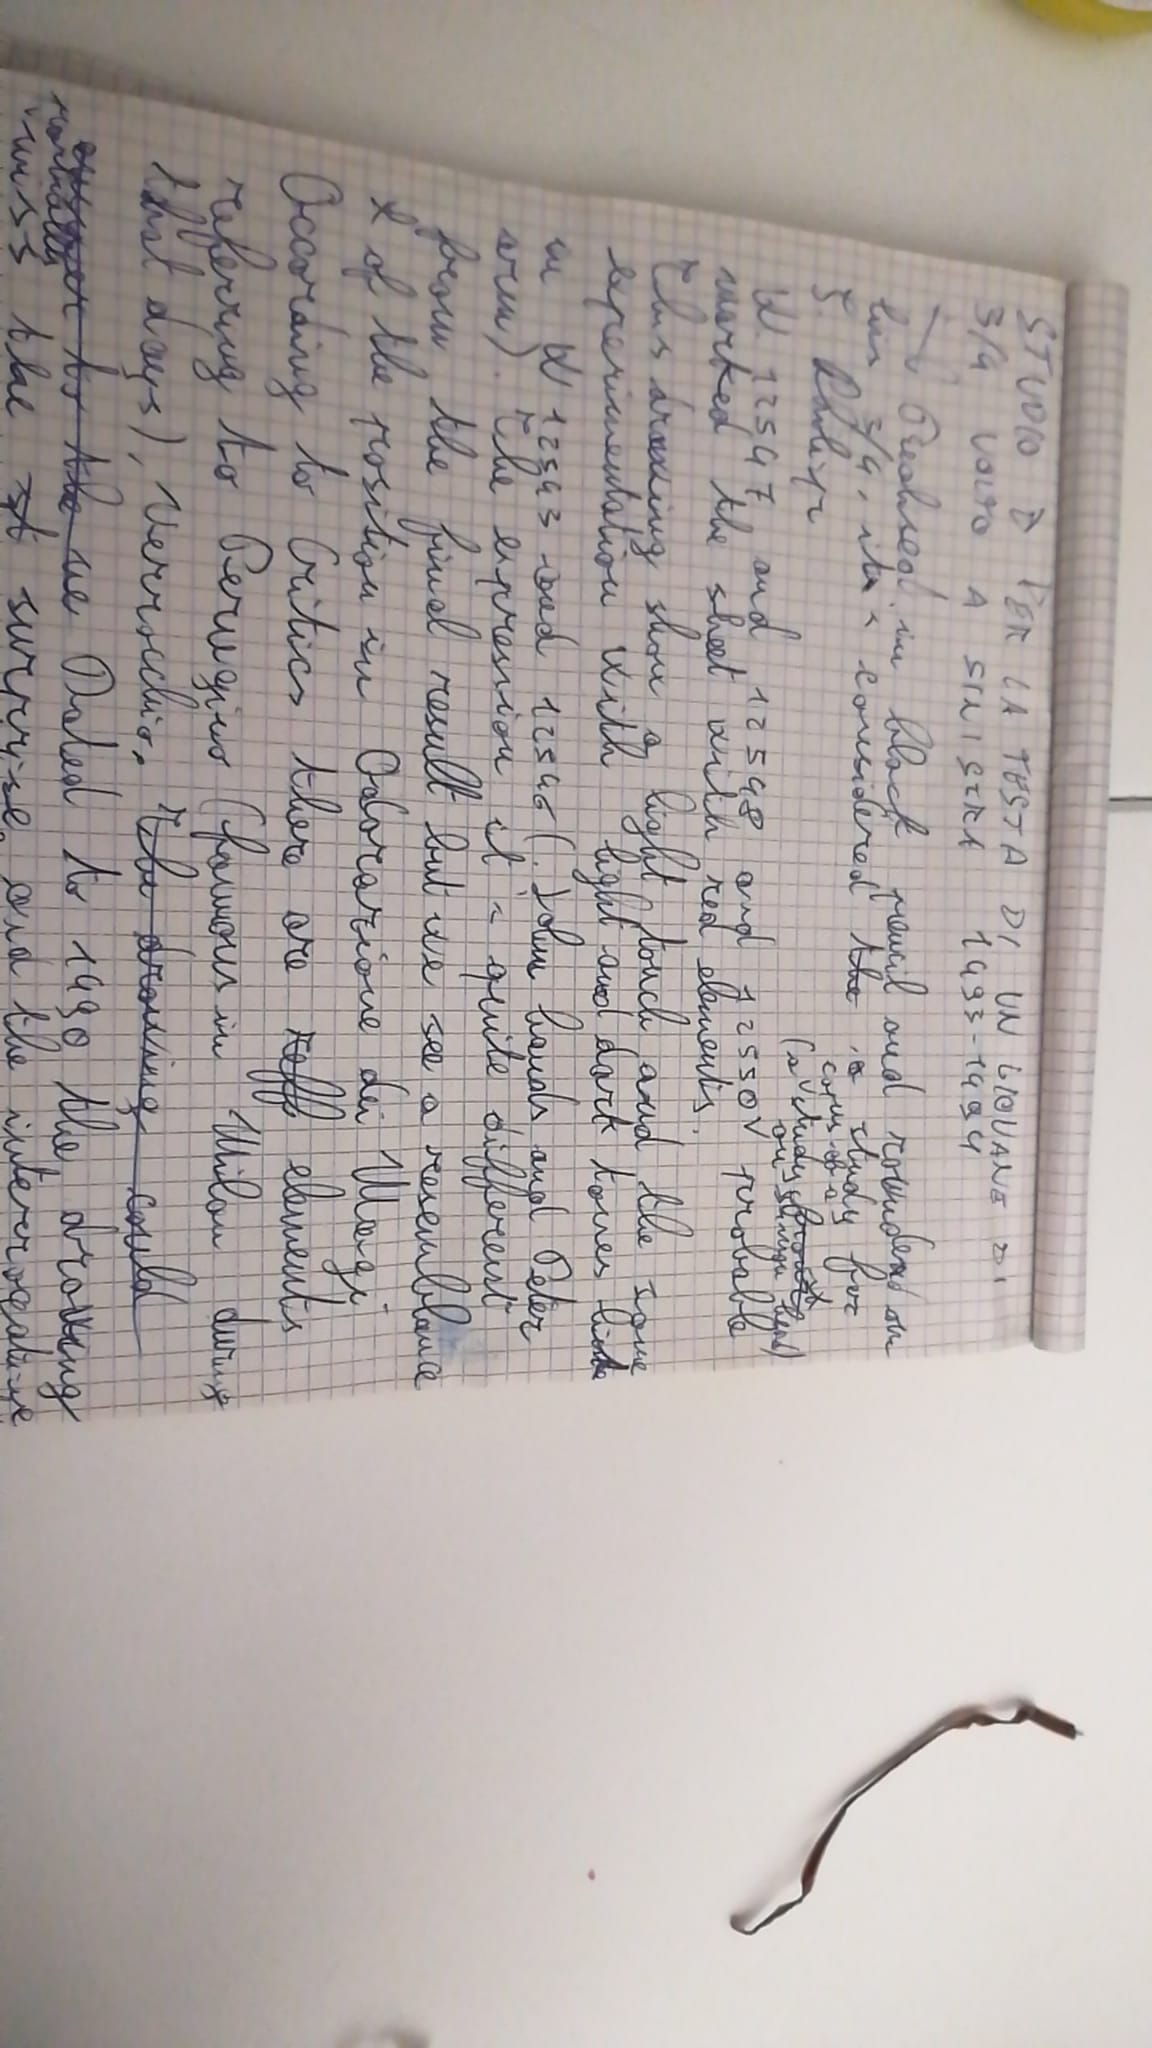 STUDIO PER LA TESTA DI UN GIOVANE DI
3/4 VOLTO A SINISTRA 1493-1494
in black pencil and rounded on
3/4, it's considered the a study for
S. Philip
copy of a
(a study
on
W. 12547 and 12548 and 12550V probable
marked the sheet with red elements.
This drawing show a light touch and the same
experimentation with light and dark tones like
in W 12543 and 12546 (John hands and Peter
arm). The expression it's quite different
from the final result but we see a resemblance
of the position in Adorazione dei Magi
According to Critics there are elements
referring to Perugino (famous in Milan during
that days), Verrocchio. The drawing could
to the we Dated to 1490 the drawing
miss the surprise and the interrogative